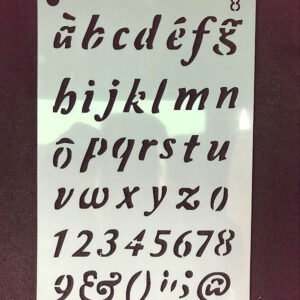 8
à b c d é f g̃
h i j k l m n
ō p q r s t u
v w x y z 0
1 2 3 4 5 6 7 8
9 & ( ) ! ; @